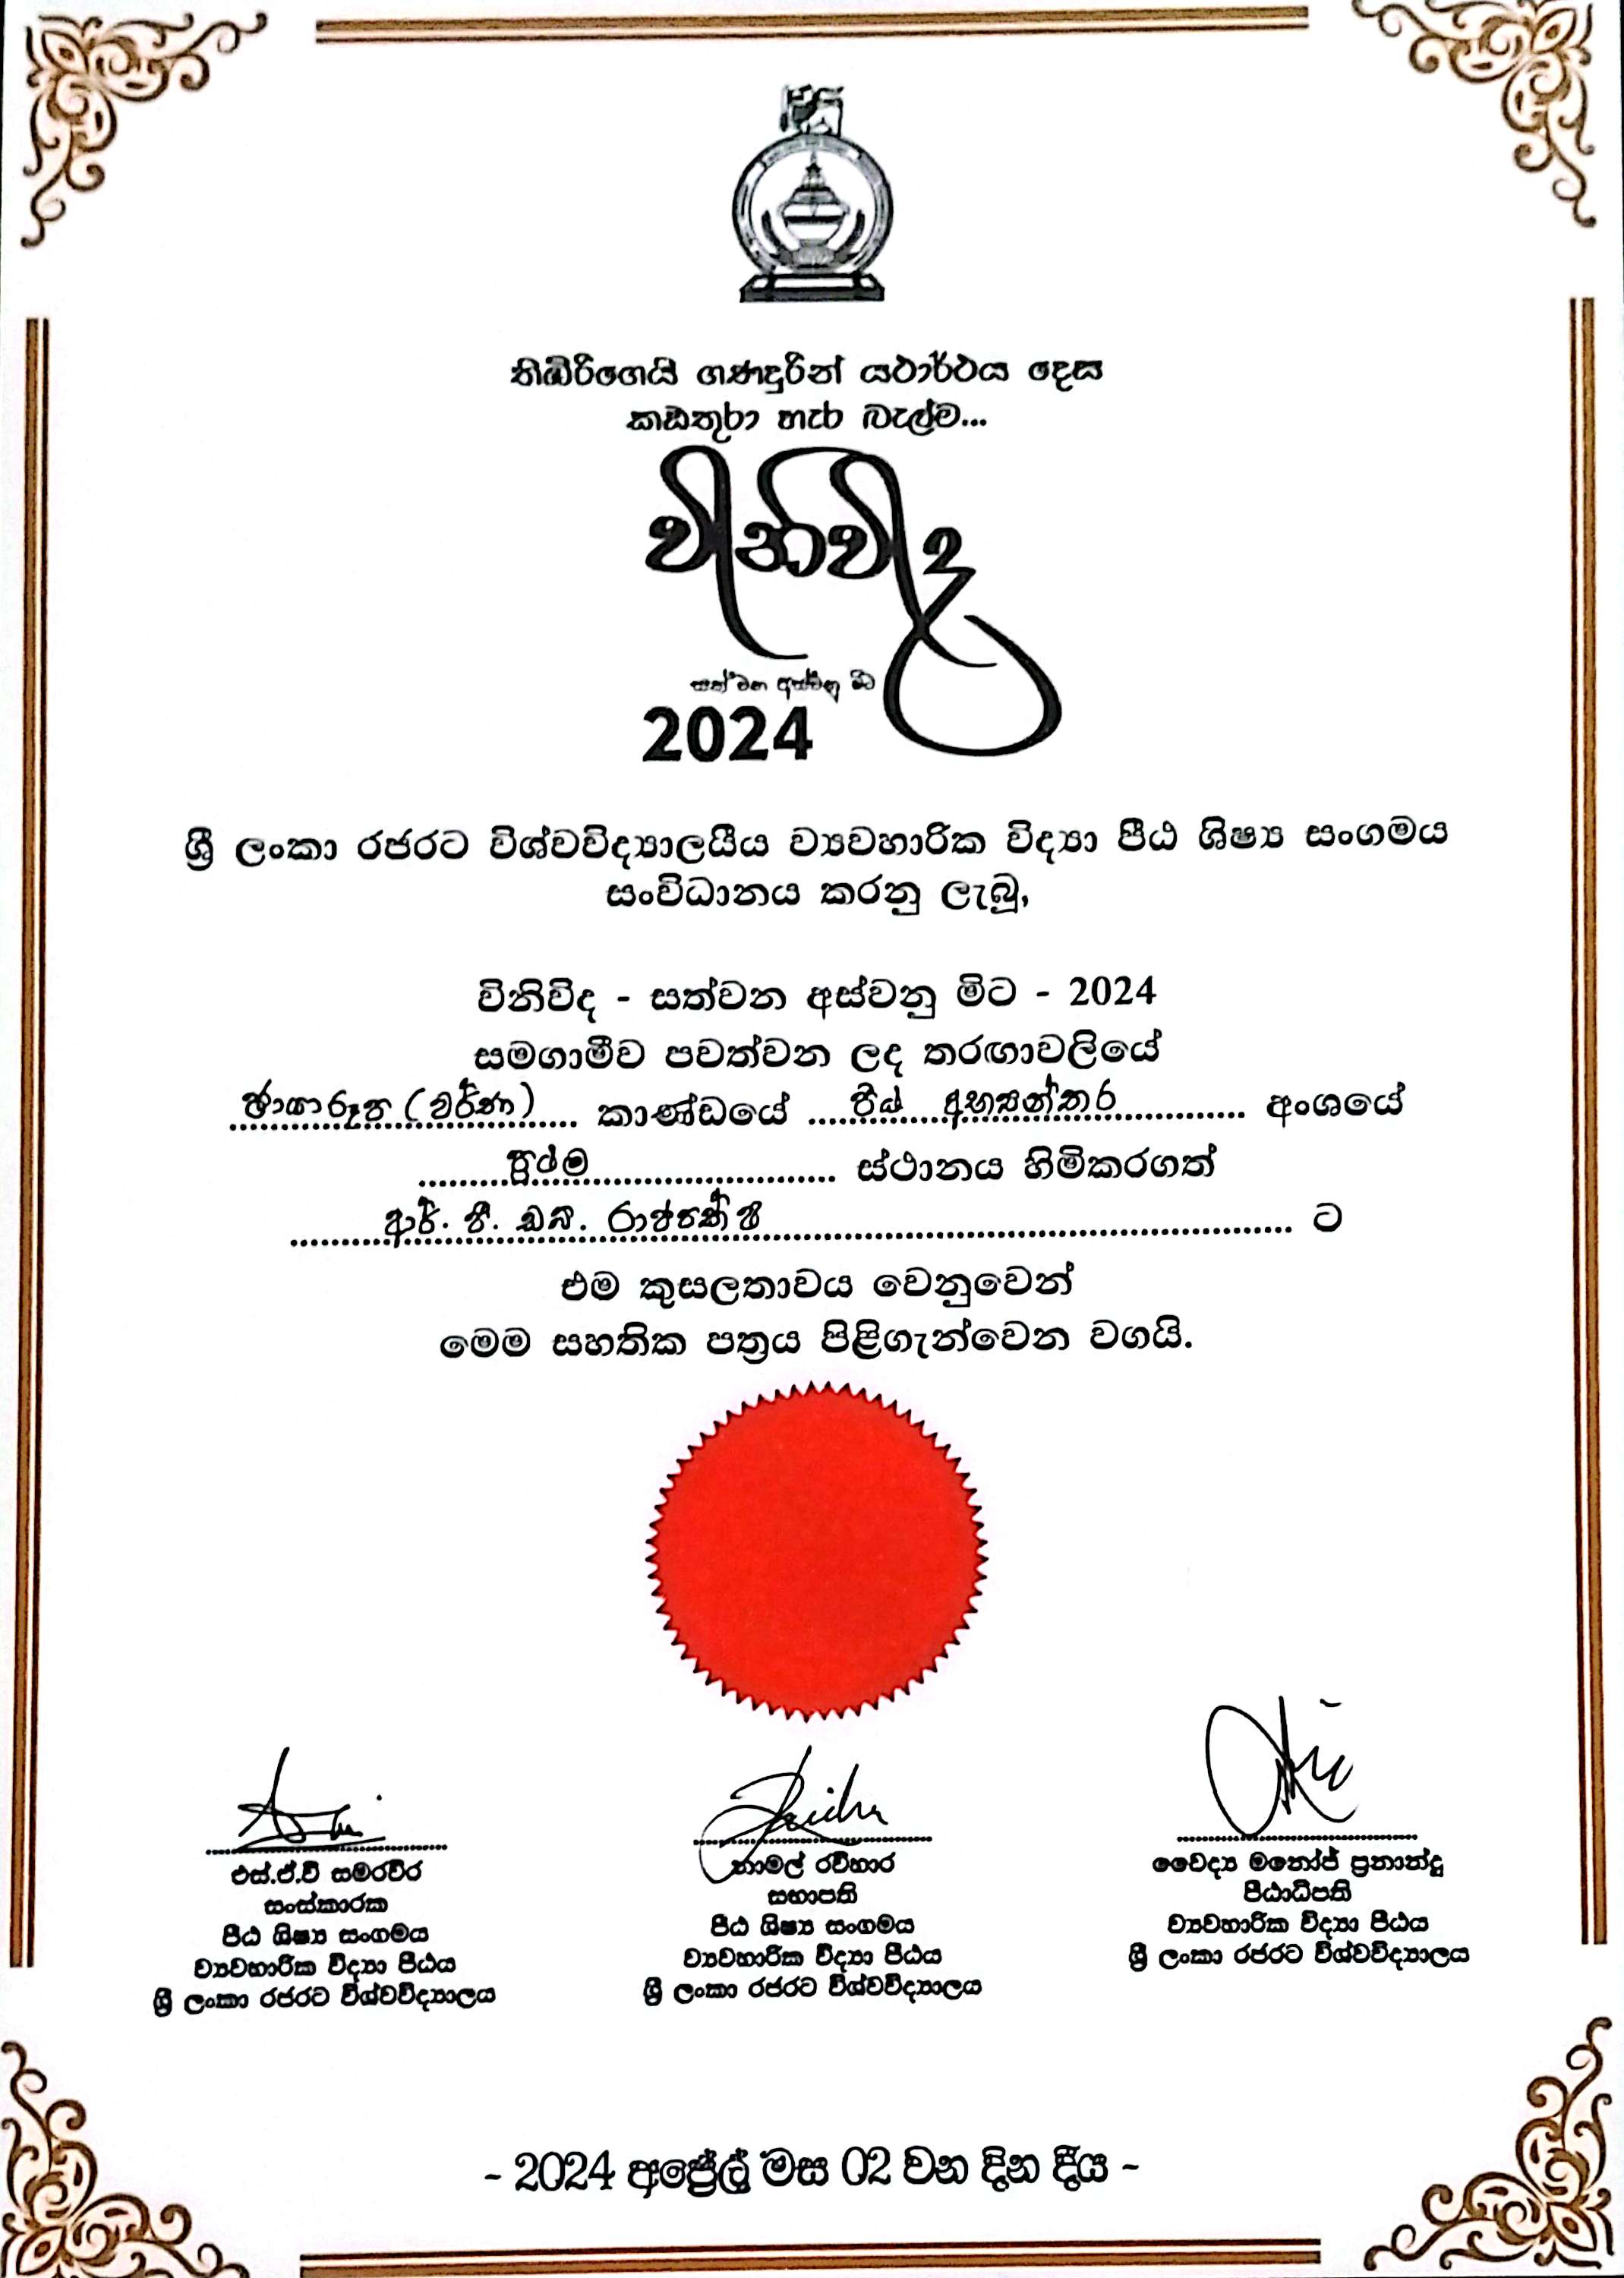 තිඹිරිගෙයි ගණදුරින් යථාර්ථය දෙස
කඩතුරා හැර බැල්ම...
විනිවිද
සත් වන අස්වනු මිට
2024
ශ්‍රී ලංකා රජරට විශ්වවිද්‍යාලයීය ව්‍යවහාරික විද්‍යා පීඨ ශිෂ්‍ය සංගමය
සංවිධානය කරනු ලැබූ,
විනිවිද - සත්වන අස්වනු මිට - 2024
සමගාමීව පවත්වන ලද තරඟාවලියේ
ඡායාරූප (වර්ණ) කාණ්ඩයේ පීඨ අභ්‍යන්තර අංශයේ
ප්‍රථම ස්ථානය හිමිකරගත්
ආර්. පී. ඩබ්. රාජපක්ෂ ට
එම කුසලතාවය වෙනුවෙන්
මෙම සහතික පත්‍රය පිළිගැන්වෙන වගයි.
එස්.ඒ.වි සමරවීර
සංස්කාරක
පීඨ ශිෂ්‍ය සංගමය
ව්‍යවහාරික විද්‍යා පීඨය
ශ්‍රී ලංකා රජරට විශ්වවිද්‍යාලය
නාමල් රවිහාර
සභාපති
පීඨ ශිෂ්‍ය සංගමය
ව්‍යවහාරික විද්‍යා පීඨය
ශ්‍රී ලංකා රජරට විශ්වවිද්‍යාලය
වෛද්‍ය මනෝජ් ප්‍රනාන්දු
පීඨාධිපති
ව්‍යවහාරික විද්‍යා පීඨය
ශ්‍රී ලංකා රජරට විශ්වවිද්‍යාලය
- 2024 අප්‍රේල් මස 02 වන දින දීය -